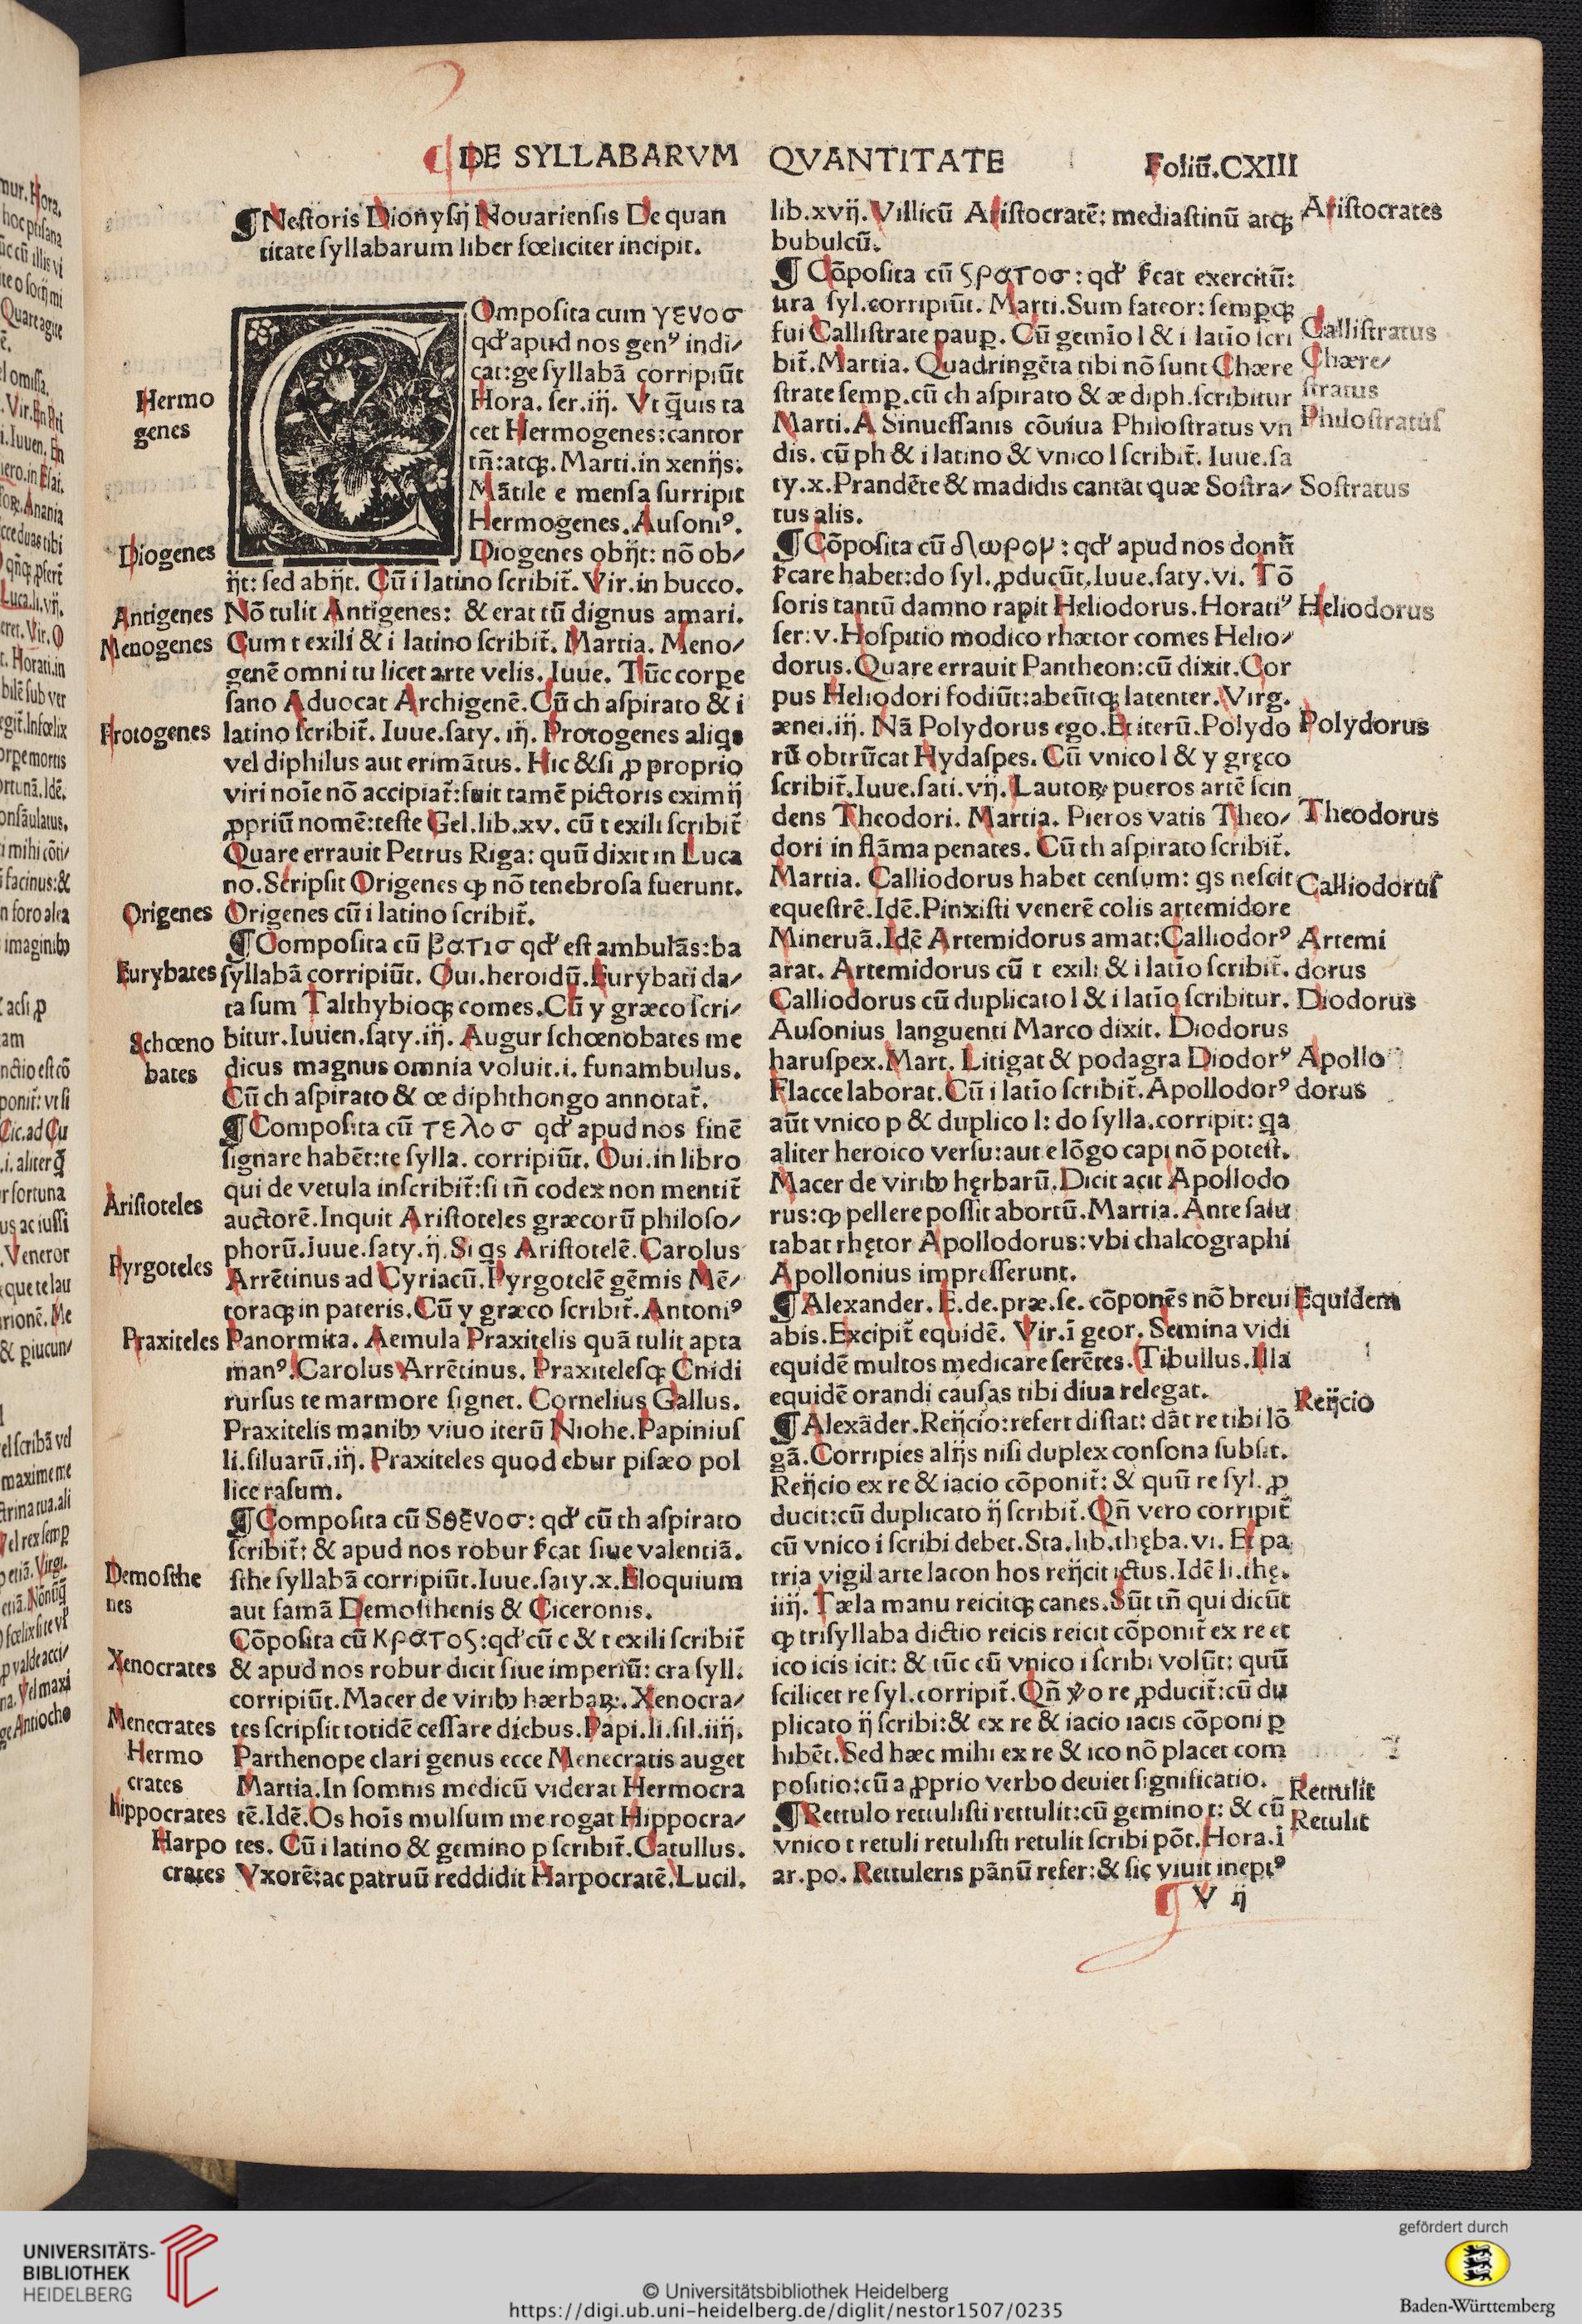 DE SYLLABARVM QVANTITATE Foliū.CXIII
¶Nestoris Dionysij Nouariensis De quan
titate syllabarum liber fœliciter incipit.
COmposita cum γενοσ
qđ apud nos genꝰ indi/
cat:ge syllabā corripiūt
Hora. ser.iij. Vt q̄uis ta
cet Hermogenes:cantor
tn̄:atqꝫ. Marti.in xenijs.
Mātile e mensa surripit
Hermogenes.Ausoniꝰ.
Diogenes obijt: nō ob/
ijt: sed abijt. Cū i latino scribit̄. Vir.in bucco.
Nō tulit Antigenes: & erat tū dignus amari.
Cum t exili & i latino scribit̄. Martia. Meno/
genē omni tu licet arte velis. Iuue. Tūc corpe
sano Aduocat Archigenē.Cū ch aspirato & i
latino scribit̄. Iuue.saty. iij. Protogenes aliqs
vel diphilus aut erimātus. Hic &si ꝓ proprio
viri noīe nō accipiat̄:fuit tamē pictoris eximij
ꝓpriū nomē:teste Gel.lib.xv. cū t exili scribit̄
Quare errauit Petrus Riga: quū dixit in Luca
no.Scripsit Origenes ꝙ nō tenebrosa fuerunt.
Origenes cū i latino scribit̄.
¶Composita cū βατισ qđ est ambulās:ba
syllabā corripiūt. Oui.heroidū.Eurybati da/
ta sum Talthybioqꝫ comes.Cū y græco scri/
bitur.Iuuen.saty.iij. Augur schœnobates me
dicus magnus omnia voluit.i. funambulus.
Cū ch aspirato & œ diphthongo annotat̄.
¶Composita cū τελοσ qđ apud nos finē
signare habēt:te sylla. corripiūt. Oui.in libro
qui de vetula inscribit̄:si tn̄ codex non mentit̄
auctorē.Inquit Aristoteles græcorū philoso/
phorū.Iuue.saty.ij.Si qs Aristotelē.Carolus
Arrētinus ad Cyriacū.Pyrgotelē gēmis Mē/
toraqꝫ in pateris.Cū y græco scribit̄.Antoniꝰ
Panormita. Aemula Praxitelis quā tulit apta
manꝰ.Carolus Arrētinus. Praxitelesqꝫ Cnidi
rursus te marmore signet. Cornelius Gallus.
Praxitelis manibꝰ viuo iterū Niohe.Papinius
li.siluarū.iij. Praxiteles quod ebur pisæo pol
lice rasum.
¶Composita cū Sθενοσ: qđ cū th aspirato
scribit̄: & apud nos robur ſcat siue valentiā.
sthe syllabā corripiūt.Iuue.saty.x.Eloquium
aut famā Demosthenis & Ciceronis.
Cōposita cū κρατος:qđ cū c & t exili scribit̄
& apud nos robur dicit siue imperiū: cra syll.
corripiūt.Macer de viribꝰ hærbaꝝ. Xenocra/
tes scripsit totidē cessare diebus.Papi.li.sil.iiij.
Parthenope clari genus ecce Menecratis auget
Martia.In somnis medicū viderat Hermocra
tē.Idē.Os hoīs mulsum me rogat Hippocra/
tes. Cū i latino & gemino p scribit̄.Catullus.
Vxorē:ac patruū reddidit Harpocratē.Lucil.
Hermo
genes
Diogenes
Antigenes
Menogenes
Protogenes
Origenes
Eurybates
Schœno
bates
Aristoteles
Pyrgoteles
Praxiteles
Demosthe
nes
Xenocrates
Menecrates
Hermo
crates
hippocrates
Harpo
crates
lib.xvij.Villicū Aristocratē: mediastinū atqꝫ
bubulcū.
¶ Cōposita cū ςρατοσ: qđ ſcat exercitū:
tra syl.corripiūt. Marti.Sum fateor: semꝑqꝫ
fui Callistrate pauꝑ. Cū gemīo l & i latīo scri
bit̄.Martia. Quadringēta tibi nō sunt Chære
strate semꝑ.cū ch aspirato & æ diph.scribitur
Marti.A Sinuessanis cōuiua Philostratus vn
dis. cū ph & i latino & vnico l scribit̄. Iuue.sa
ty.x.Prandēte & madidis cantat quæ Sostra/
tus alis.
¶Cōposita cū δωρον: qđ apud nos donū
ſcare habet:do syl.ꝓducūt.Iuue.saty.vi. Tō
soris tantū damno rapit Heliodorus.Horatiꝰ
ser:v.Hospitio modico rhætor comes Helio/
dorus.Quare errauit Pantheon:cū dixit.Cor
pus Heliodori fodiūt:abeūtqꝫ latenter.Virg.
ænei.iij. Nā Polydorus ego.Et iterū.Polydo
rū obtrūcat Hydaspes. Cū vnico l & y gręco
scribit̄.Iuue.sati.vij. Lautoꝝ pueros artē scin
dens Theodori. Martia. Pieros vatis Theo/
dori in flāma penates. Cū th aspirato scribit̄.
Martia. Calliodorus habet censum: qs nescit
equestrē.Idē.Pinxisti venerē colis artemidore
Mineruā.Idē Artemidorus amat:Calliodorꝰ
arat. Artemidorus cū t exili & i latīo scribit̄.
Calliodorus cū duplicato l & i latīo scribitur.
Ausonius languenti Marco dixit. Diodorus
haruspex.Mart. Litigat & podagra Diodorꝰ
Flacce laborat.Cū i latīo scribit̄.Apollodorꝰ
aūt vnico p & duplico l: do sylla.corripit: qa
aliter heroico versu:aut e lōgo capi nō potest.
Macer de viribꝰ hęrbarū.Dicit acit Apollodo
rus:ꝙ pellere possit abortū.Martia.Ante salu
tabat rhętor Apollodorus:vbi chalcographi
Apollonius impresserunt.
¶ Alexander. E.de.præ.se. cōponēs nō breui
abis.Excipit̄ equidē. Vir.ī geor. Semina vidi
equidē multos medicare serētes.Tibullus.Illa
equidē orandi causas tibi diua relegat.
¶Alexāder.Reijcio:refert distat: dāt re tibi lō
gā.Corripies alijs nisi duplex consona subsit.
Reijcio ex re & iacio cōponit̄: & quū re syl. ꝓ
ducit:cū duplicato ij scribit̄.Qn̄ vero corripit̄
cū vnico i scribi debet.Sta.lib.thęba.vi. Et pa
tria vigil arte lacon hos reijcit ictus.Idē li.thę.
iiij. Tæla manu reicitqꝫ canes.Sūt tn̄ qui dicūt
ꝙ trisyllaba dictio reicis reicit cōponit̄ ex re et
ico icis icit: & tūc cū vnico i scribi volūt: quū
scilicet re syl.corripit̄.Qn̄ ꝟo re ꝓducit̄:cū du
plicato ij scribi:& ex re & iacio iacis cōponi ꝑ
hibēt.Sed hæc mihi ex re & ico nō placet com
positio:cū a ꝓprio verbo deuiet significatio.
¶Rettulo rettulisti rettulit:cū gemino t: & cū
vnico t retuli retulisti retulit scribi pōt.Hora.ī
ar.po. Rettuleris pānū refer:& sic viuit ineptꝰ
V ij
Aristocrates
Callistratus
Chære/
stratus
Philostratus
Sostratus
Heliodorus
Polydorus
Theodorus
Calliodorus
Artemi
dorus
Diodorus
Apollo
dorus
Equidem
Reijcio
Rettulit
Retulit
UNIVERSITÄTS-
BIBLIOTHEK
HEIDELBERG
© Universitätsbibliothek Heidelberg
https://digi.ub.uni-heidelberg.de/diglit/nestor1507/0235
gefördert durch
Baden-Württemberg